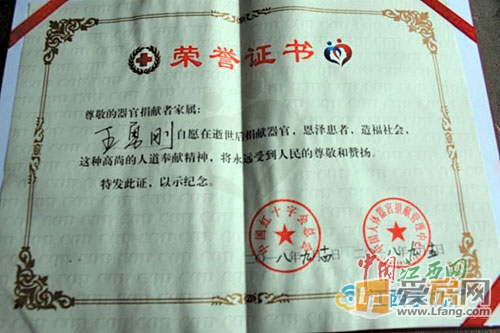 荣誉证书
尊敬的器官捐献者家属：
王勇刚自愿在逝世后捐献器官，恩泽患者，造福社会，
这种高尚的人道奉献精神，将永远受到人民的尊敬和赞扬。
特发此证，以示纪念。
中国红十字会总会
中国人体器官捐献管理中心
中国江西网
爱房网
www.Lfang.com